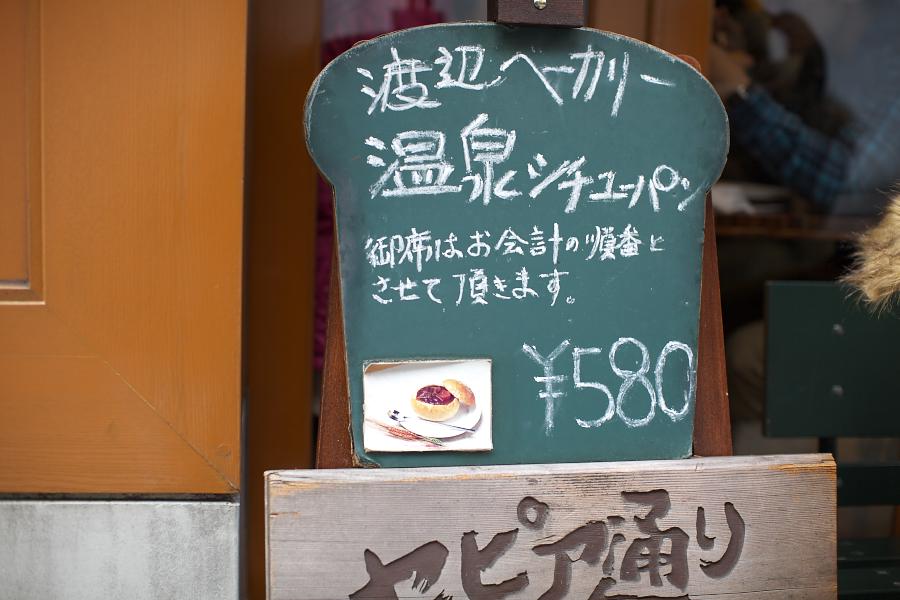 渡辺ベーカリー
温泉シチューパン
御席はお会計の順番と
させて頂きます。
¥580
セピア通り